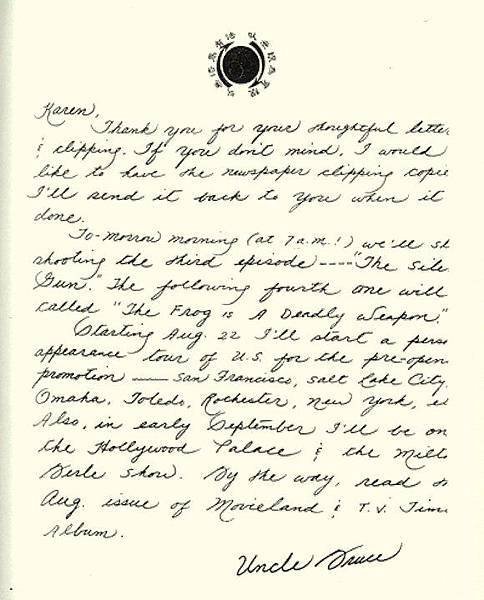 Karen,
Thank you for your thoughtful lette
& clipping. If you don't mind, I would
like to have the newspaper clipping copie
I'll send it back to you when it
done.
To-morrow morning (at 7 a.m.!) we'll st
shooting the third episode ---- "The Sile
Gun." The following fourth one will
called "The Frog is A Deadly Weapon."
Starting Aug. 22 I'll start a pers
appearance tour of U.S. for the pre-open
promotion — San Francisco, Salt Lake City
Omaha, Toledo, Rochester, New York, et
Also, in early September I'll be on
the Hollywood Palace & the Milt
Berle Show. By the way, read
Aug. issue of Movieland & T.V. Time
Album.
Uncle Bruce